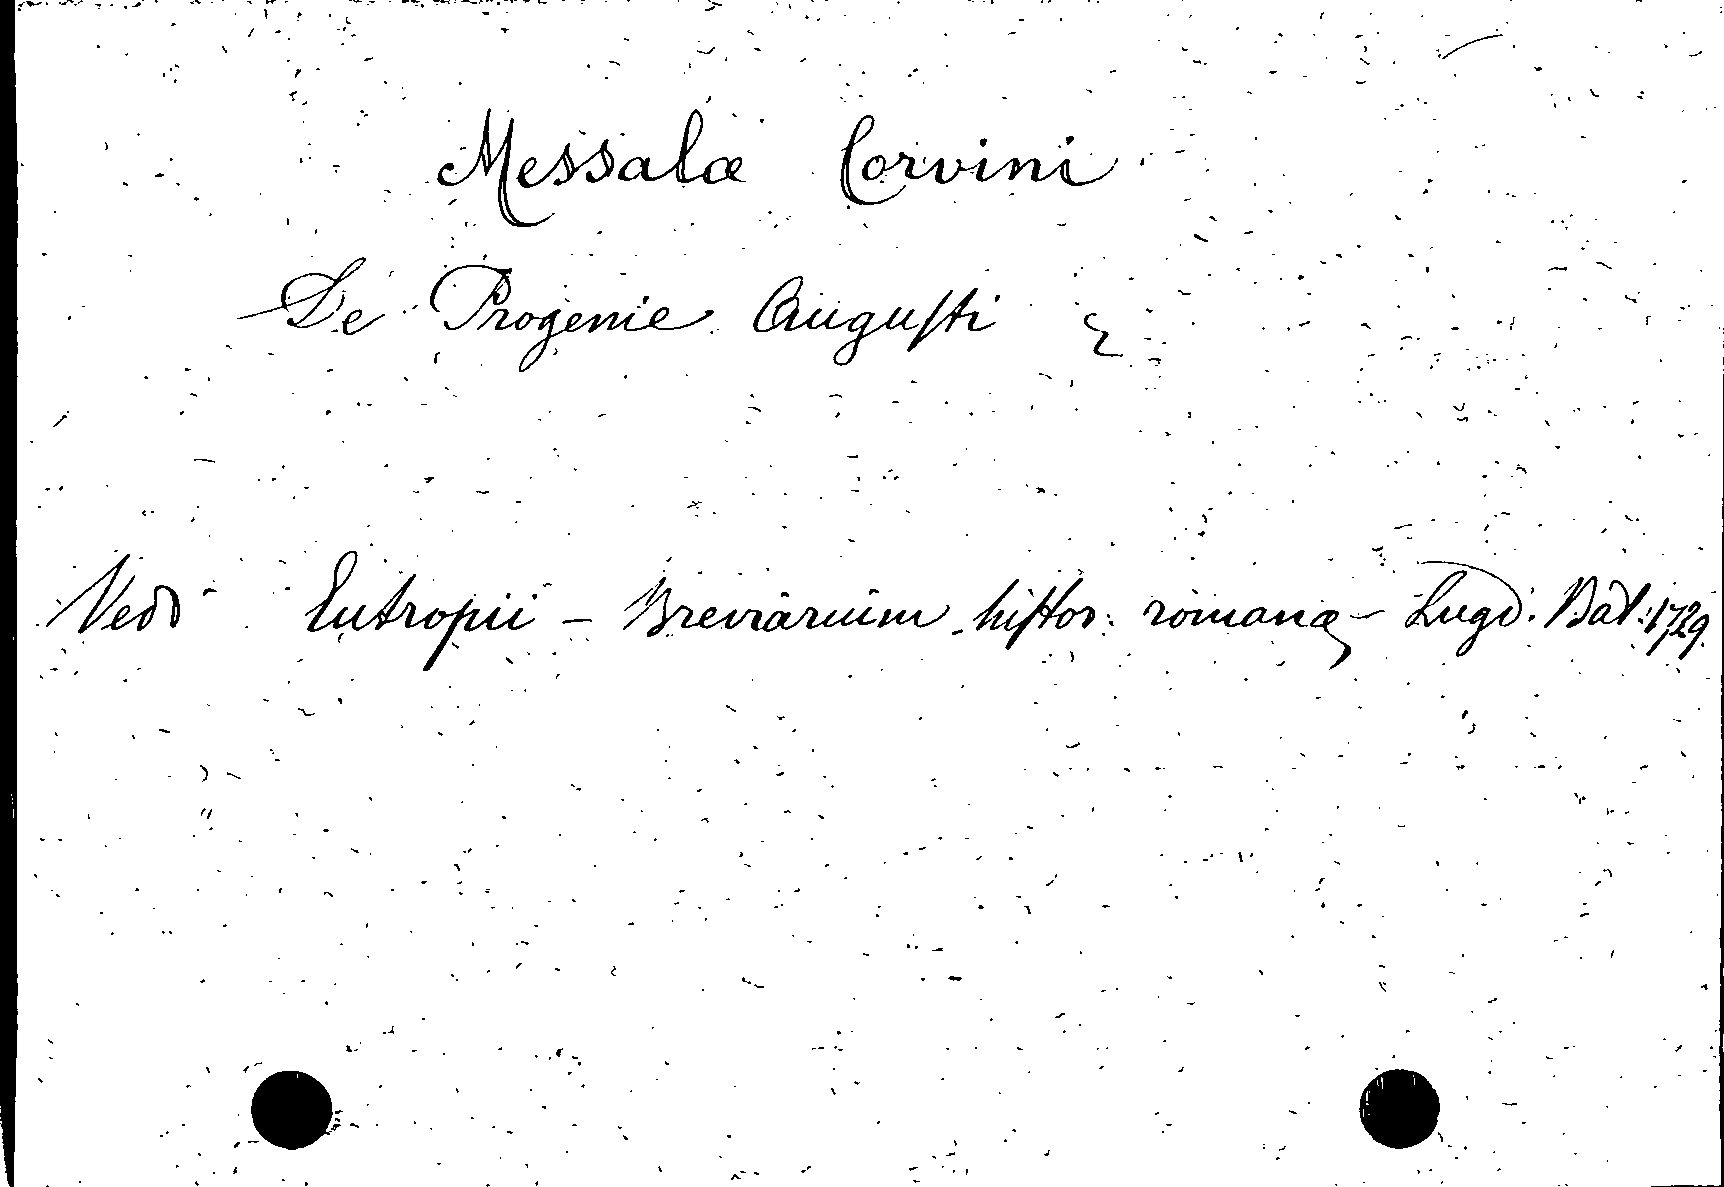 Messalæ Corvini
De Progenie Augusti
Vedi Eutropii - Breviarium histor: romanæ - Lugd. Bat: 1729.